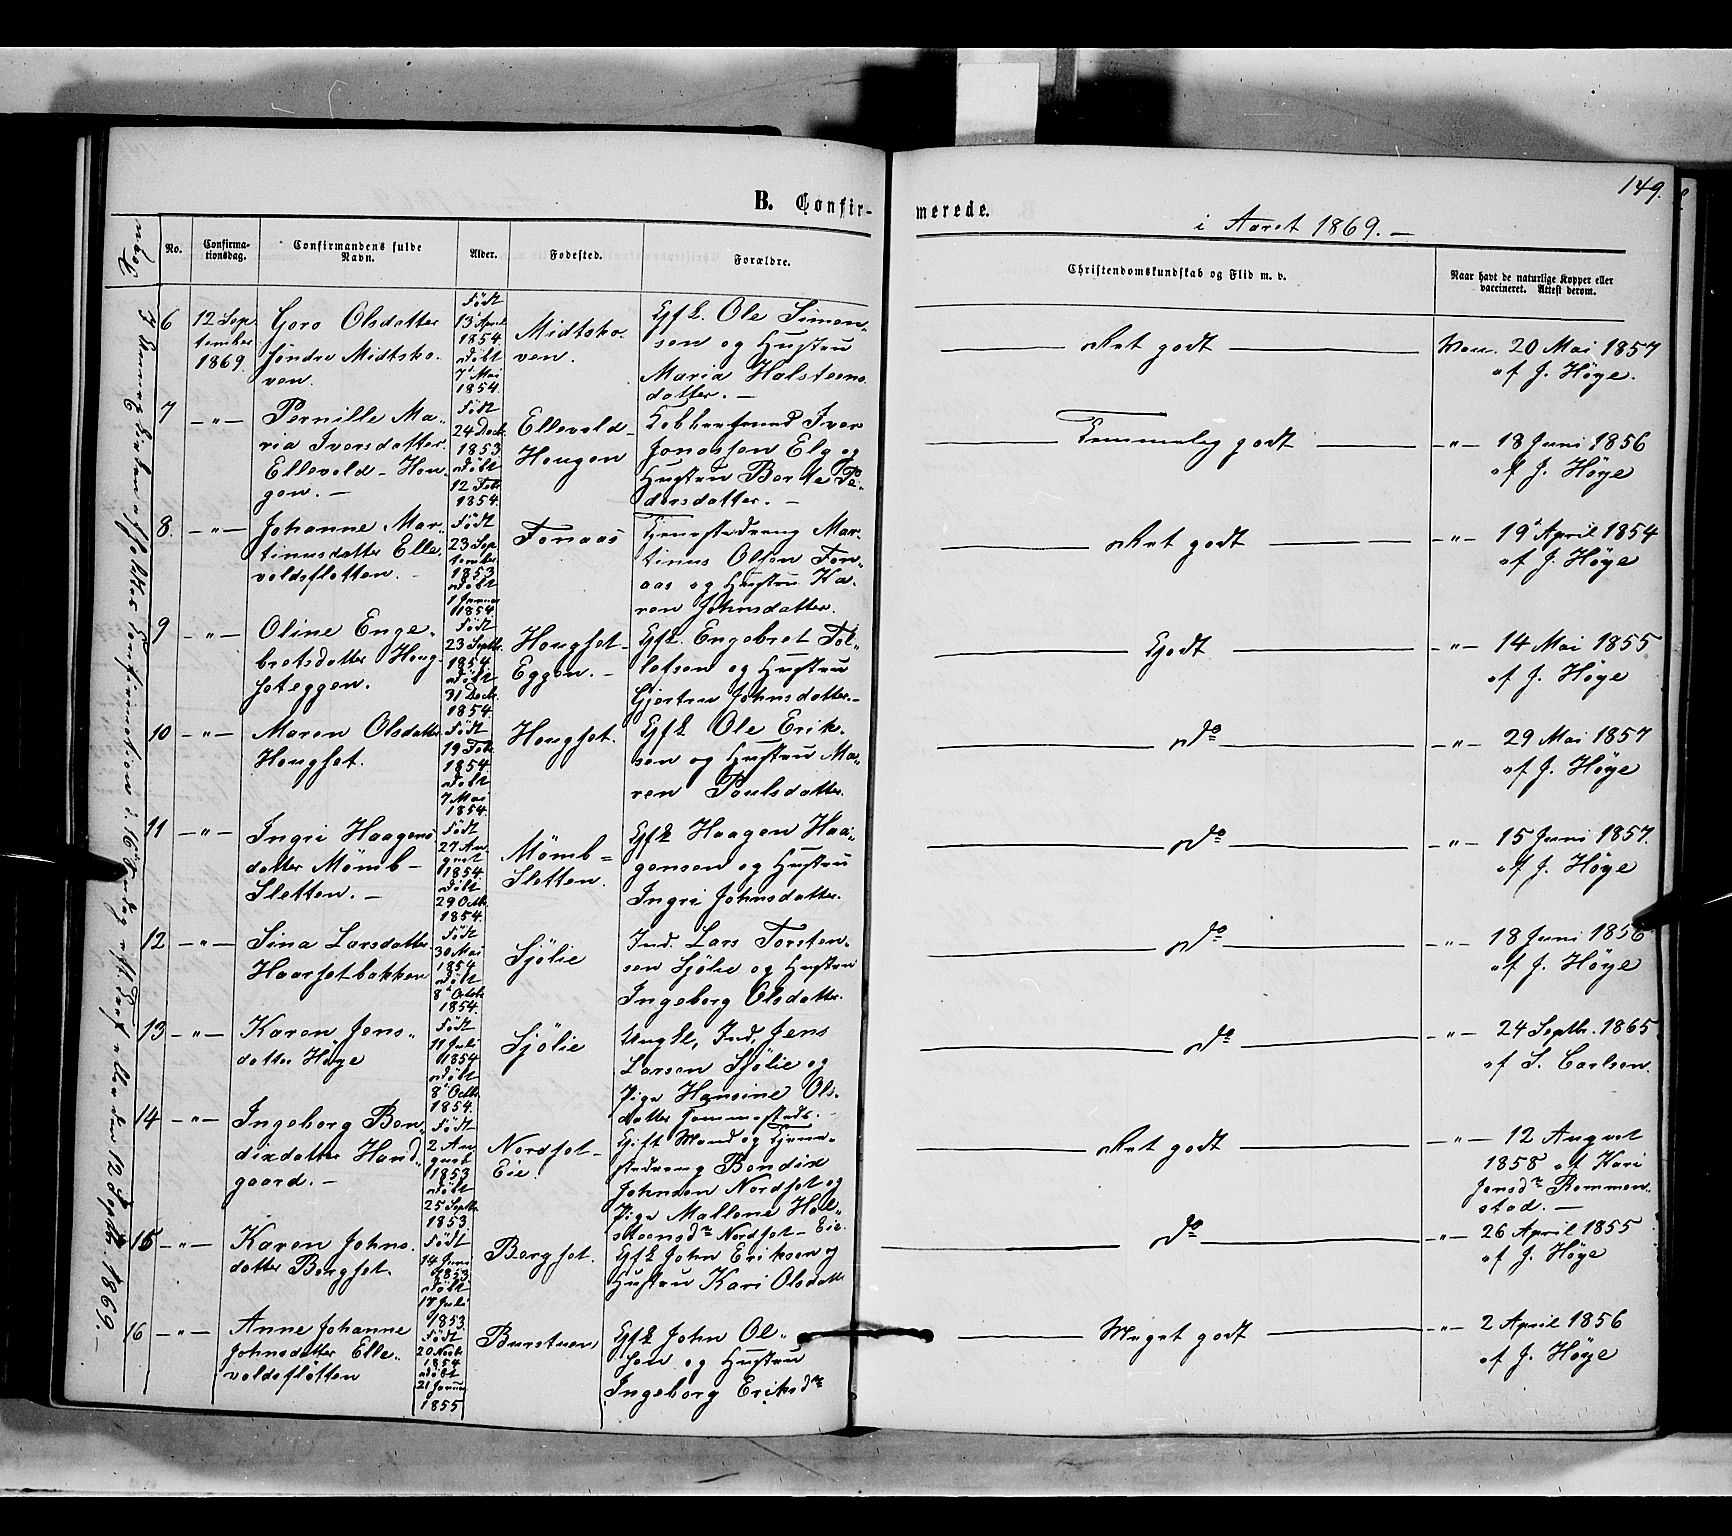 149.
B. Confir-
merede.
i Aaret 1869. —
No.
Confirma-
tionsdag.
Confirmandens fulde
Navn.
Alder.
Fødested.
Forældre.
Christendomskundskab og Flid m. v.
Naar havt de naturlige Kopper eller
vaccineret. Attest derom.
6
12 Sep-
tember
1869.
Goro Olsdatter
søndre Midtsko-
ven.
Født
13 April
1854
døbt
7d Mai
1854.
Midtsko-
ven.
Gfk. Ole Simen-
sen og Hustru
Maria Halsteens-
datter. —
Ret godt
Vacc. 20 Mai 1857
af J. Höye.
7
— „ —
Pernille Ma-
ria Iversdatter
Ellevold-Hou-
gen. —
Født
24 Decb.
1853
døbt
12 Feb.
1854.
Ellevold-
Hougen
Kobbersmed Iver
Jonassen Elg og
Hustru Berte Pe-
dersdatter. —
Temmelig godt
— „ — 18 Juni 1856
af J. Höye
8.
— „ —
Johanne Mar-
tinusdatter Elle-
voldsfløtten. —
Født
23 Sep-
tember
1853
døbt
1 Januar
1854.
Fonaas
Tjenestedreng Mar-
tinus Olsen Fon-
aas og Hustru Ka-
ren Johnsdatter.
Ret godt
— „ — 19d April 1854
af J. Höye
9
— „ —
Oline Enge-
bretsdatter Houg-
seteggen.
Født
23 Septb.
1854.
døbt
31 Decb.
1854.
Hougset-
Eggen. —
Gfk. Engebret Tol-
lefsen og Hustru
Gjertru Johnsdatter. —
Godt
— „ — 14 Mai 1855
af J. Höye
10
— „ —
Maren Olsdatter
Hougset.
Født
19 Feb.
1854
døbt
7 Mai
1854.
Hougset.
Gfk Ole Erik-
sen og Hustru Ma-
ren Poulsdatter.
do
— „ — 29 Mai 1857
af J. Höye
11
— „ —
Ingri Haagens-
datter Mömb-
Sletten. —
Født
27 Au-
gust
1854.
døbt
29 Octb.
1854.
Mömb=
Sletten.
Gfk Haagen Haa-
gensen og Hustru
Ingri Johnsdatter.
do
— „ — 15 Juni 1857.
af J. Höye
12
— „ —
Sina Larsdatter
Haarsetbakken
Født
30 Mai
1854
døbt
8d Octob.
1854.
Sjölie
Ind. Lars Torsten-
sen Sjölie og Hustru
Ingeborg Olsdatter.
do
— „ — 18 Juni 1856
af J. Höye
13
— „ —
Karen Jens-
datter Höye
Født
11 Juli
1854
døbt
8d Octb.
1854.
Sjölie
Ungk, Ind, Jens
Larsen Sjölie og
Pige Hansine Ols-
datter Tommestads. —
do
— „ — 24 Septb. 1865
af S. Carlsen.
14
— „ —
Ingeborg Ben-
dixdatter Hand-
gaard. —
Født
2 Au-
gust
1853
døbt
25 Septb.
1853.
Nordset-
Eie.
Gift Mand og Tjene-
stedreng Bendix
Johnsen Nordset og
Pige Mallene Hal-
steensdr Nordset-Eie.
Ret godt
— „ — 12 August
1858 af Kari
Jensdr Rommen-
stad. —
15
— „ —
Karen Johns-
datter Bergset.
Født
14 Juni
1853
døbt
17 Juli
1853.
Bergset.
Gfk John Eriksen og
Hustru Kari Olsdatter
do
— „ — 26 April 1855
af J. Höye
16
— „ —
Anne Johanne
Johnsdatter Elle-
voldsfløtten
Født
20 Novb.
1854
døbt
21 Januar
1855
Burstuen
Gfk John Ol-
sen og Hustru
Ingeborg Eriksdr
Meget godt
— „ — 2 April 1856
af J. Höye